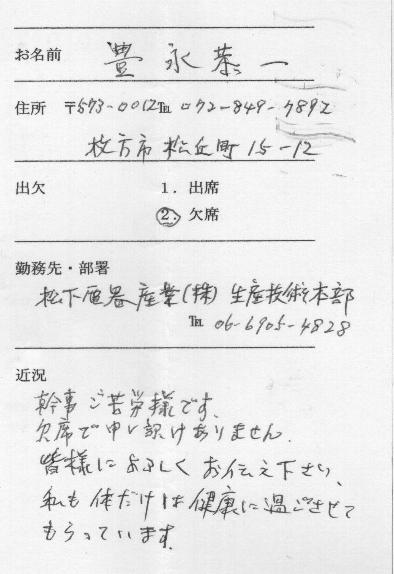 お名前 豊永恭一
住所 〒573-0012 ℡ 072-849-7892
枚方市 松丘町 15-12
出欠 1. 出席
2. 欠席
勤務先・部署
松下電器産業(株) 生産技術本部
℡ 06-6905-4828
近況
幹事ご苦労様です。
欠席で申し訳けありません。
皆様によろしくお伝え下さい、
私も体だけは健康に過ごさせて
もらっています。